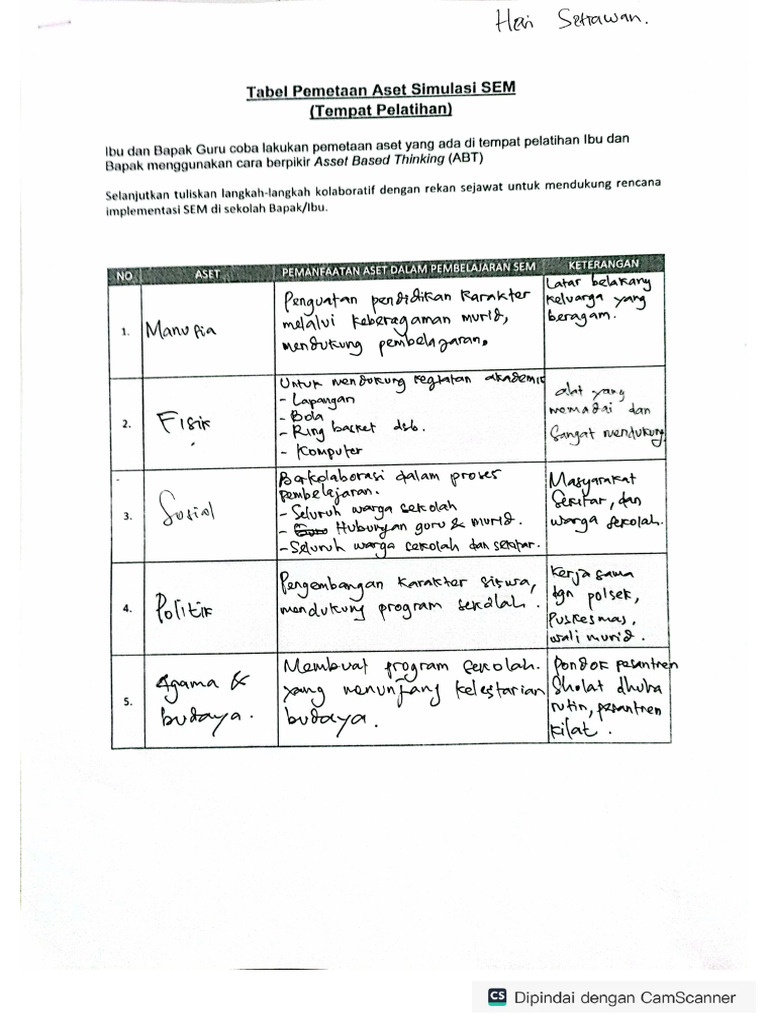 Heri Setiawan.
Tabel Pemetaan Aset Simulasi SEM
(Tempat Pelatihan)
Ibu dan Bapak Guru coba lakukan pemetaan aset yang ada di tempat pelatihan Ibu dan
Bapak menggunakan cara berpikir Asset Based Thinking (ABT)
Selanjutkan tuliskan langkah-langkah kolaboratif dengan rekan sejawat untuk mendukung rencana
implementasi SEM di sekolah Bapak/Ibu.
NO ASET PEMANFAATAN ASET DALAM PEMBELAJARAN SEM KETERANGAN
1. Manusia
Penguatan pendidikan karakter
melalui keberagaman murid,
mendukung pembelajaran.
Latar belakang
keluarga yang
beragam.
2. Fisik
Untuk mendukung kegiatan akademis
- Lapangan
- Bola
- Ring basket dsb.
- Komputer
alat yang
memadai dan
Sangat mendukung
3. Sosial
Berkolaborasi dalam proses
pembelajaran.
- Seluruh warga sekolah
- Hubungan guru & murid.
- Seluruh warga sekolah dan sekitar.
Masyarakat
Sekitar, dan
warga sekolah.
4. Politik
Pengembangan karakter siswa,
mendukung program sekolah.
Kerja sama
dgn polsek,
Puskesmas,
wali murid.
5. Agama &
budaya.
Membuat program sekolah.
yang menunjang kelestarian
budaya.
Pondok pesantren
Sholat dhuha
rutin, pesantren
kilat.
CS Dipindai dengan CamScanner